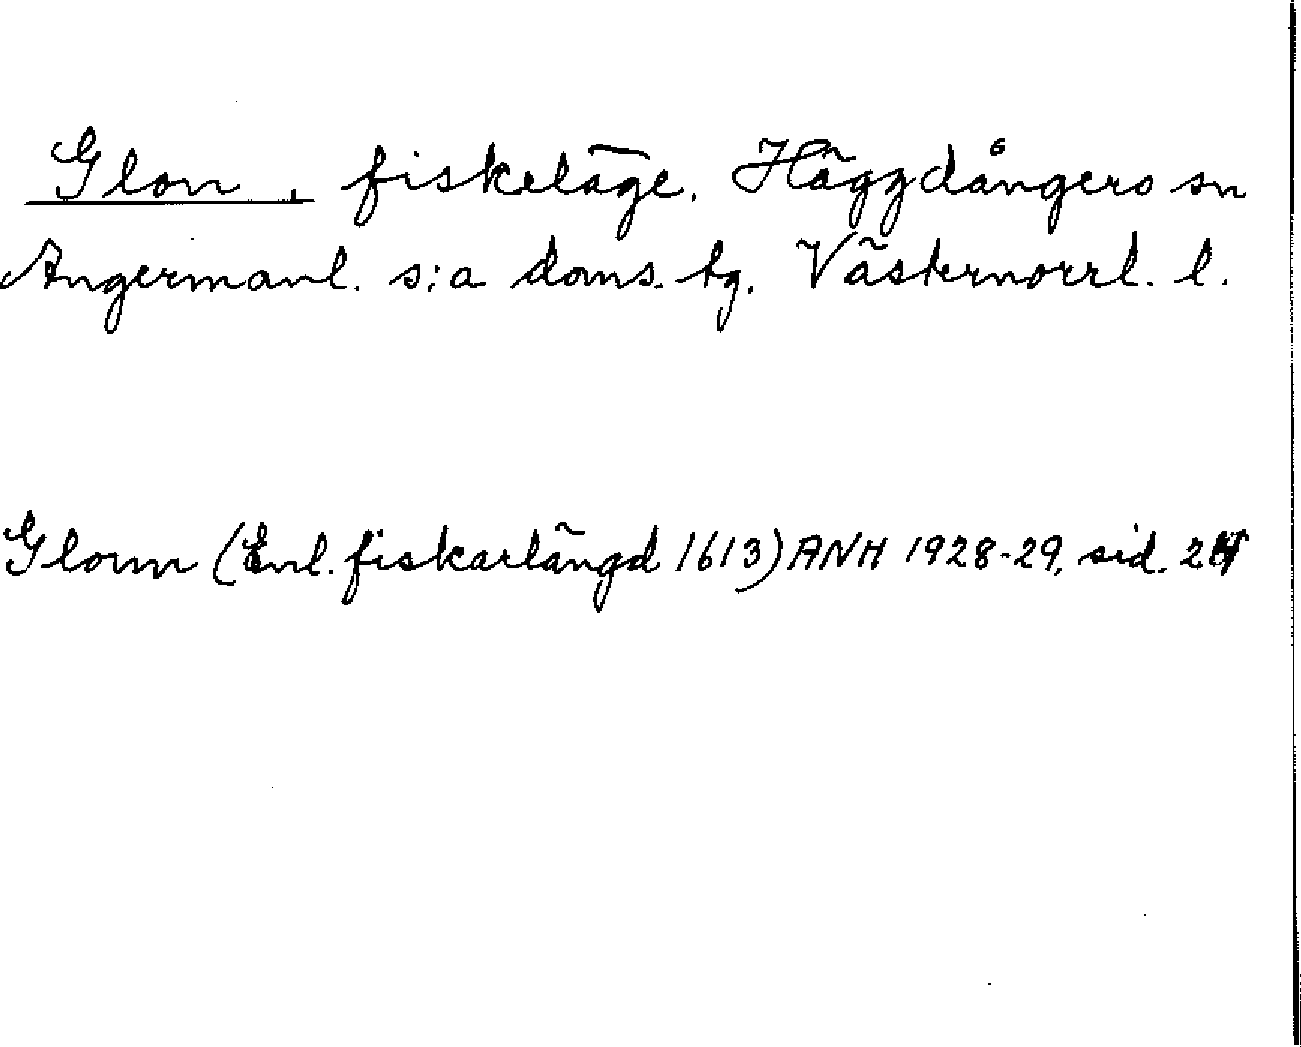 Glon, fiskeläge. Häggdångers sn
Ångermanl. s:a doms. tg. Västernorrl. l.
Glonn (Enl. fiskarlängd 1613) ANH 1928-29, sid.